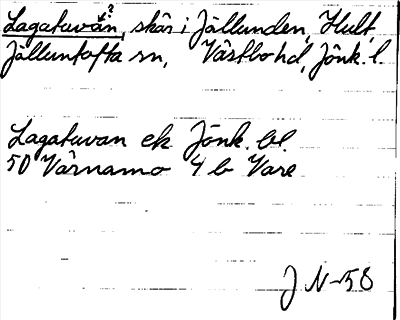 Lagatuvan?, skär i Jällunden, Hult,
Jälluntofta sn, Västbo hd, Jönk. l.
Lagatuvan ek Jönk. bl.
50 Värnamo 4 b Vare
J N-58